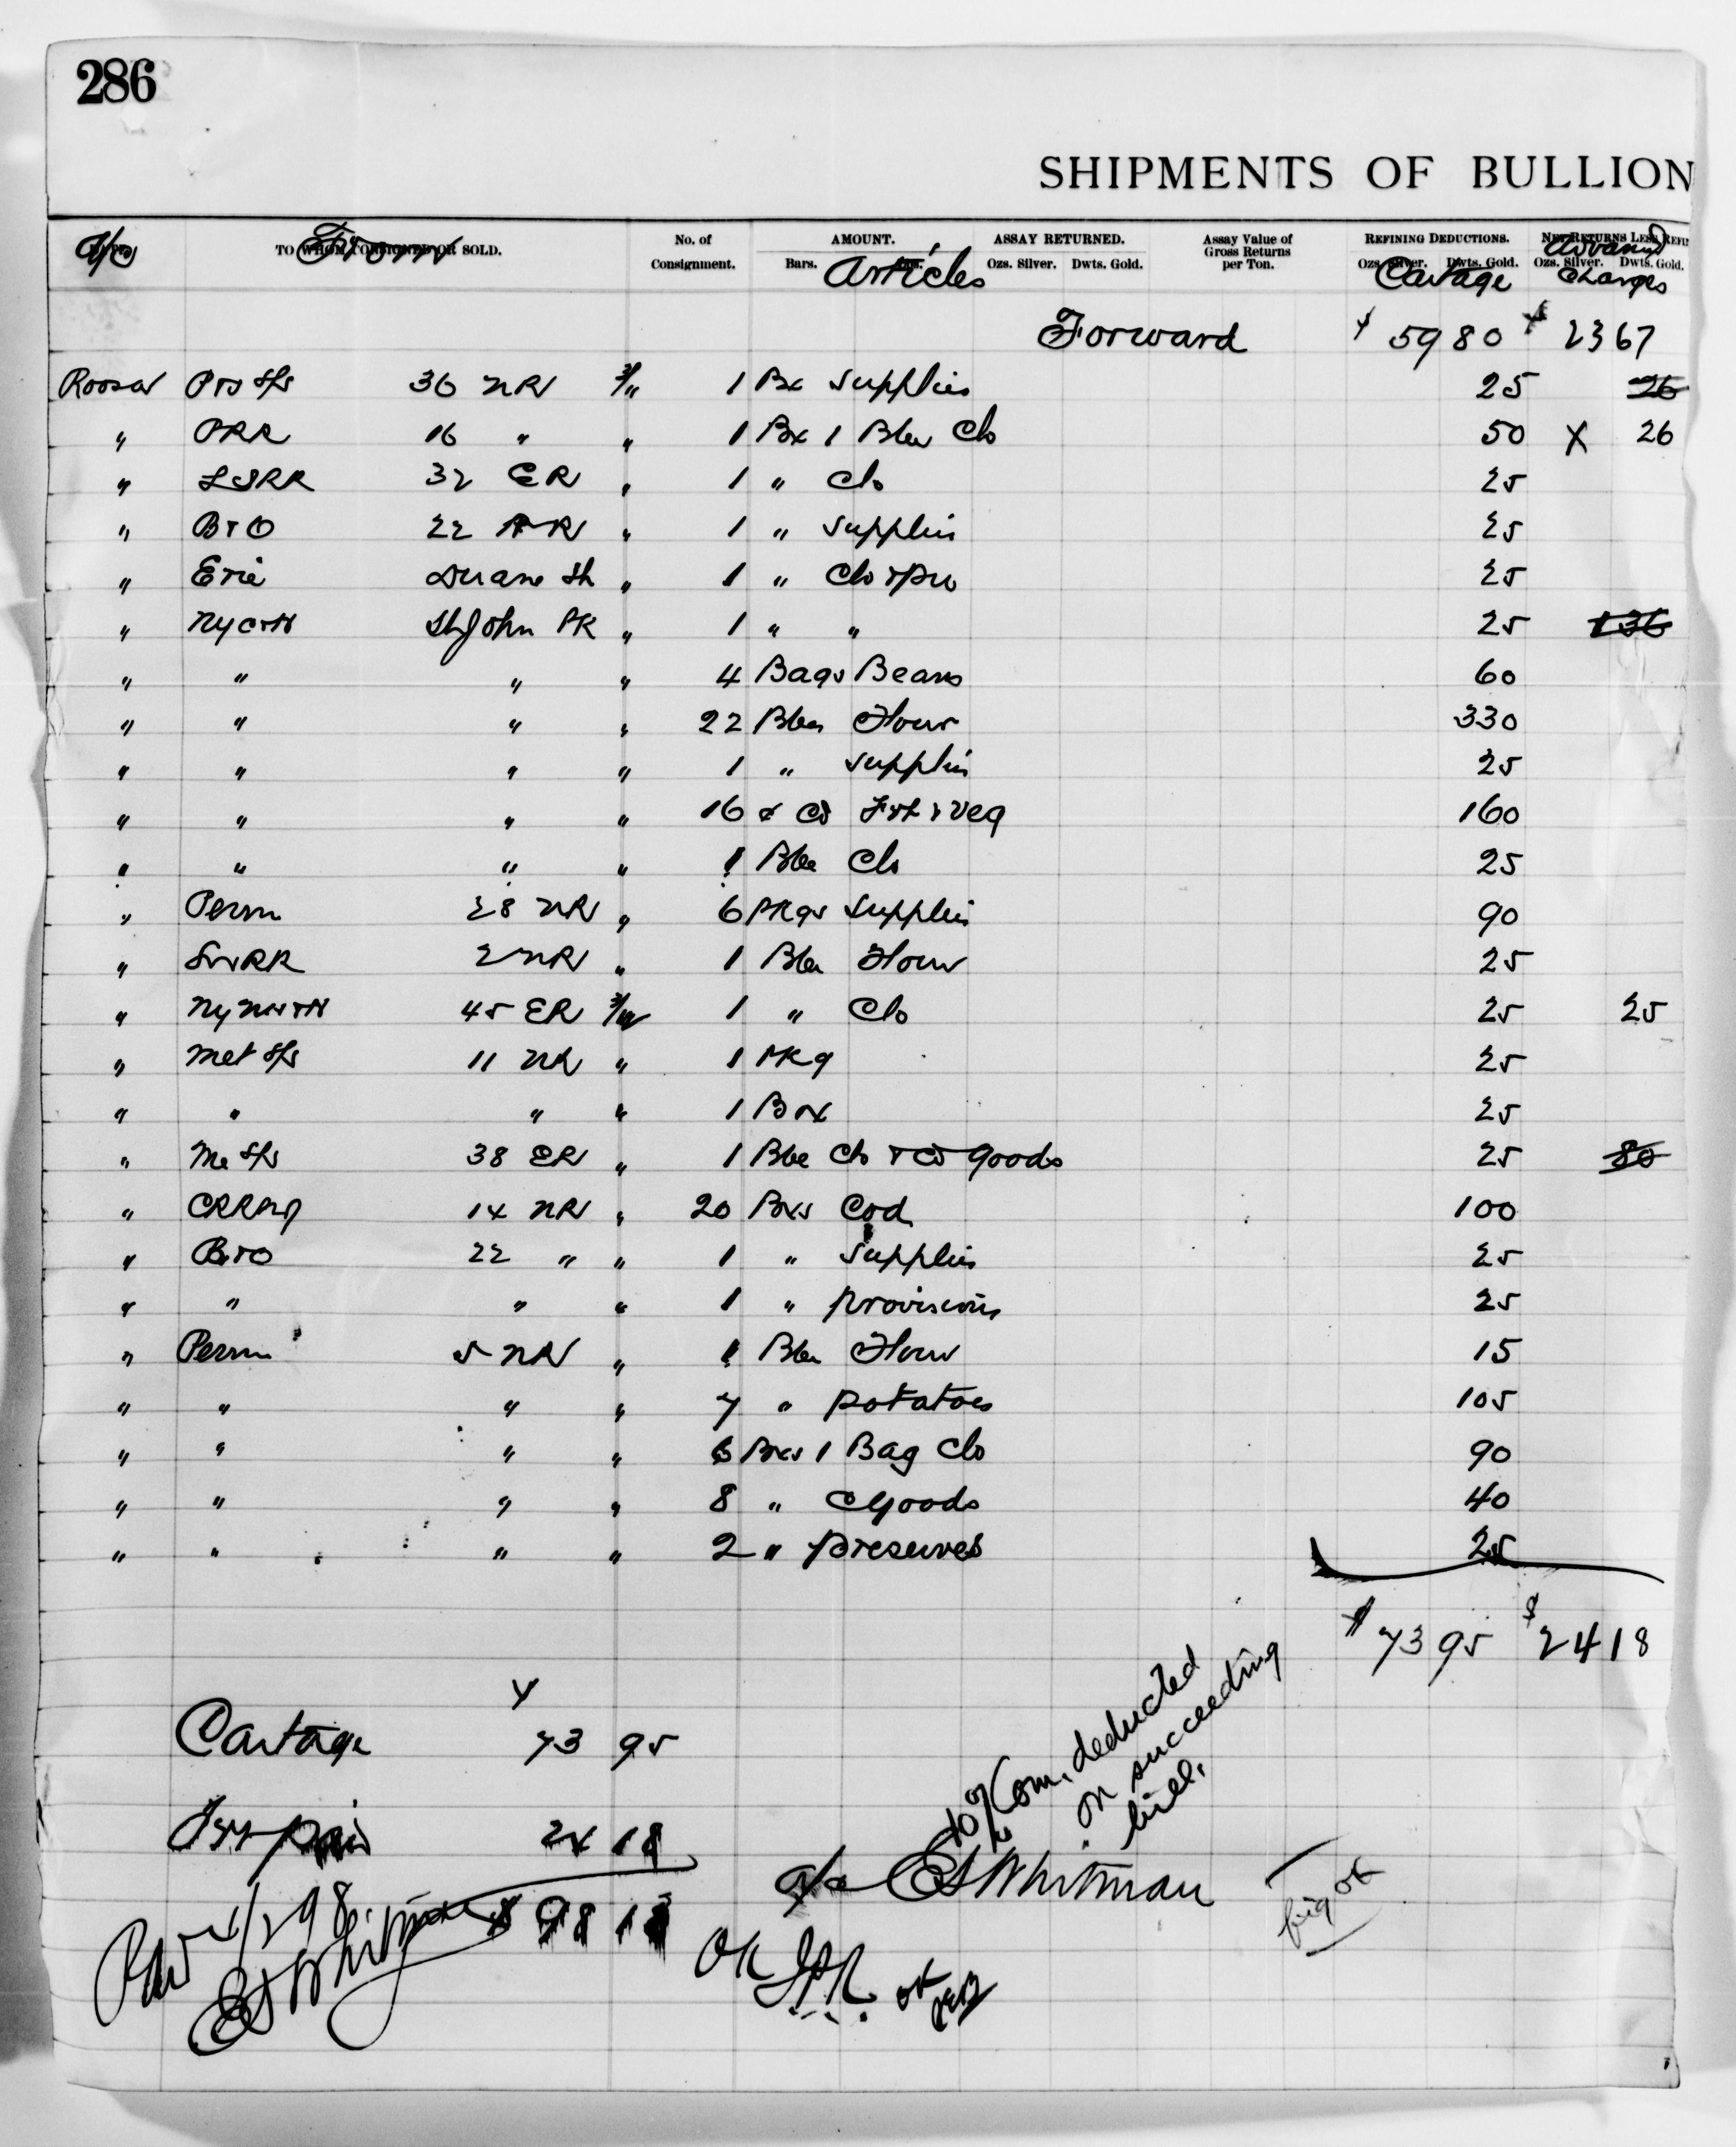 286
SHIPMENTS OF BULLION
DATE. TO WHOM CONSIGNED OR SOLD. No. of Consignment. AMOUNT. Bars. ASSAY RETURNED. Ozs. Silver. Dwts. Gold. Assay Value of Gross Returns per Ton. REFINING DEDUCTIONS. Ozs. Silver. Dwts. Gold. NET RETURNS LESS REFI Ozs. Silver. Dwts. Gold.
a/c From Articles Cartage Advanced Charges
Forward $ 59 80 $ 23 67
36 NR 3/11 1 Bx Supplies 25 26
" PRR 16 " " 1 Bx 1 Bbl Clo 50 X 26
" LVRR 32 ER " 1 " Clo 25
" B+O 22 NR " 1 " Supplies 25
" Erie Duane St " 1 " Clo + Pro 25
" NYC+H St John PK " 1 " " 25 136
" " " " 4 Bags Beans 60
" " " " 22 Bbls Flour 330
" " " " 1 " Supplies 25
" " " " 16 Frt + Veg 160
" " " " 1 Bbl Clo 25
" Penn 28 NR " 6 Pkgs Supplies 90
" 2 NR " 1 Bbl Flour 25
" NYNH+H 45 ER 1 " Clo 25 25
" Met S/s 11 NR " 1 Pkg 25
" " " " 1 Box 25
" Me S/s 38 ER " 1 Bbl Clo + Cd Goods 25 80
" CRRNJ 14 NR " 20 Bxs Cod 100
" B+O 22 " " 1 " Supplies 25
" " " " 1 " provisions 25
" Penn 5 NR " 1 Bbl Flour 15
" " " " 7 " potatoes 105
" " " " 6 Bxs 1 Bag Clo 90
" " " " 8 " C Goods 40
" " " " 2 " preserves 25
$ 73 95 $ 24 18
Cartage 73 95
24 18
$ 98 13
10% Com. deducted
on succeeding
bill.
a/c ES Whitman
fig OK
ES Whitman
OK
OK